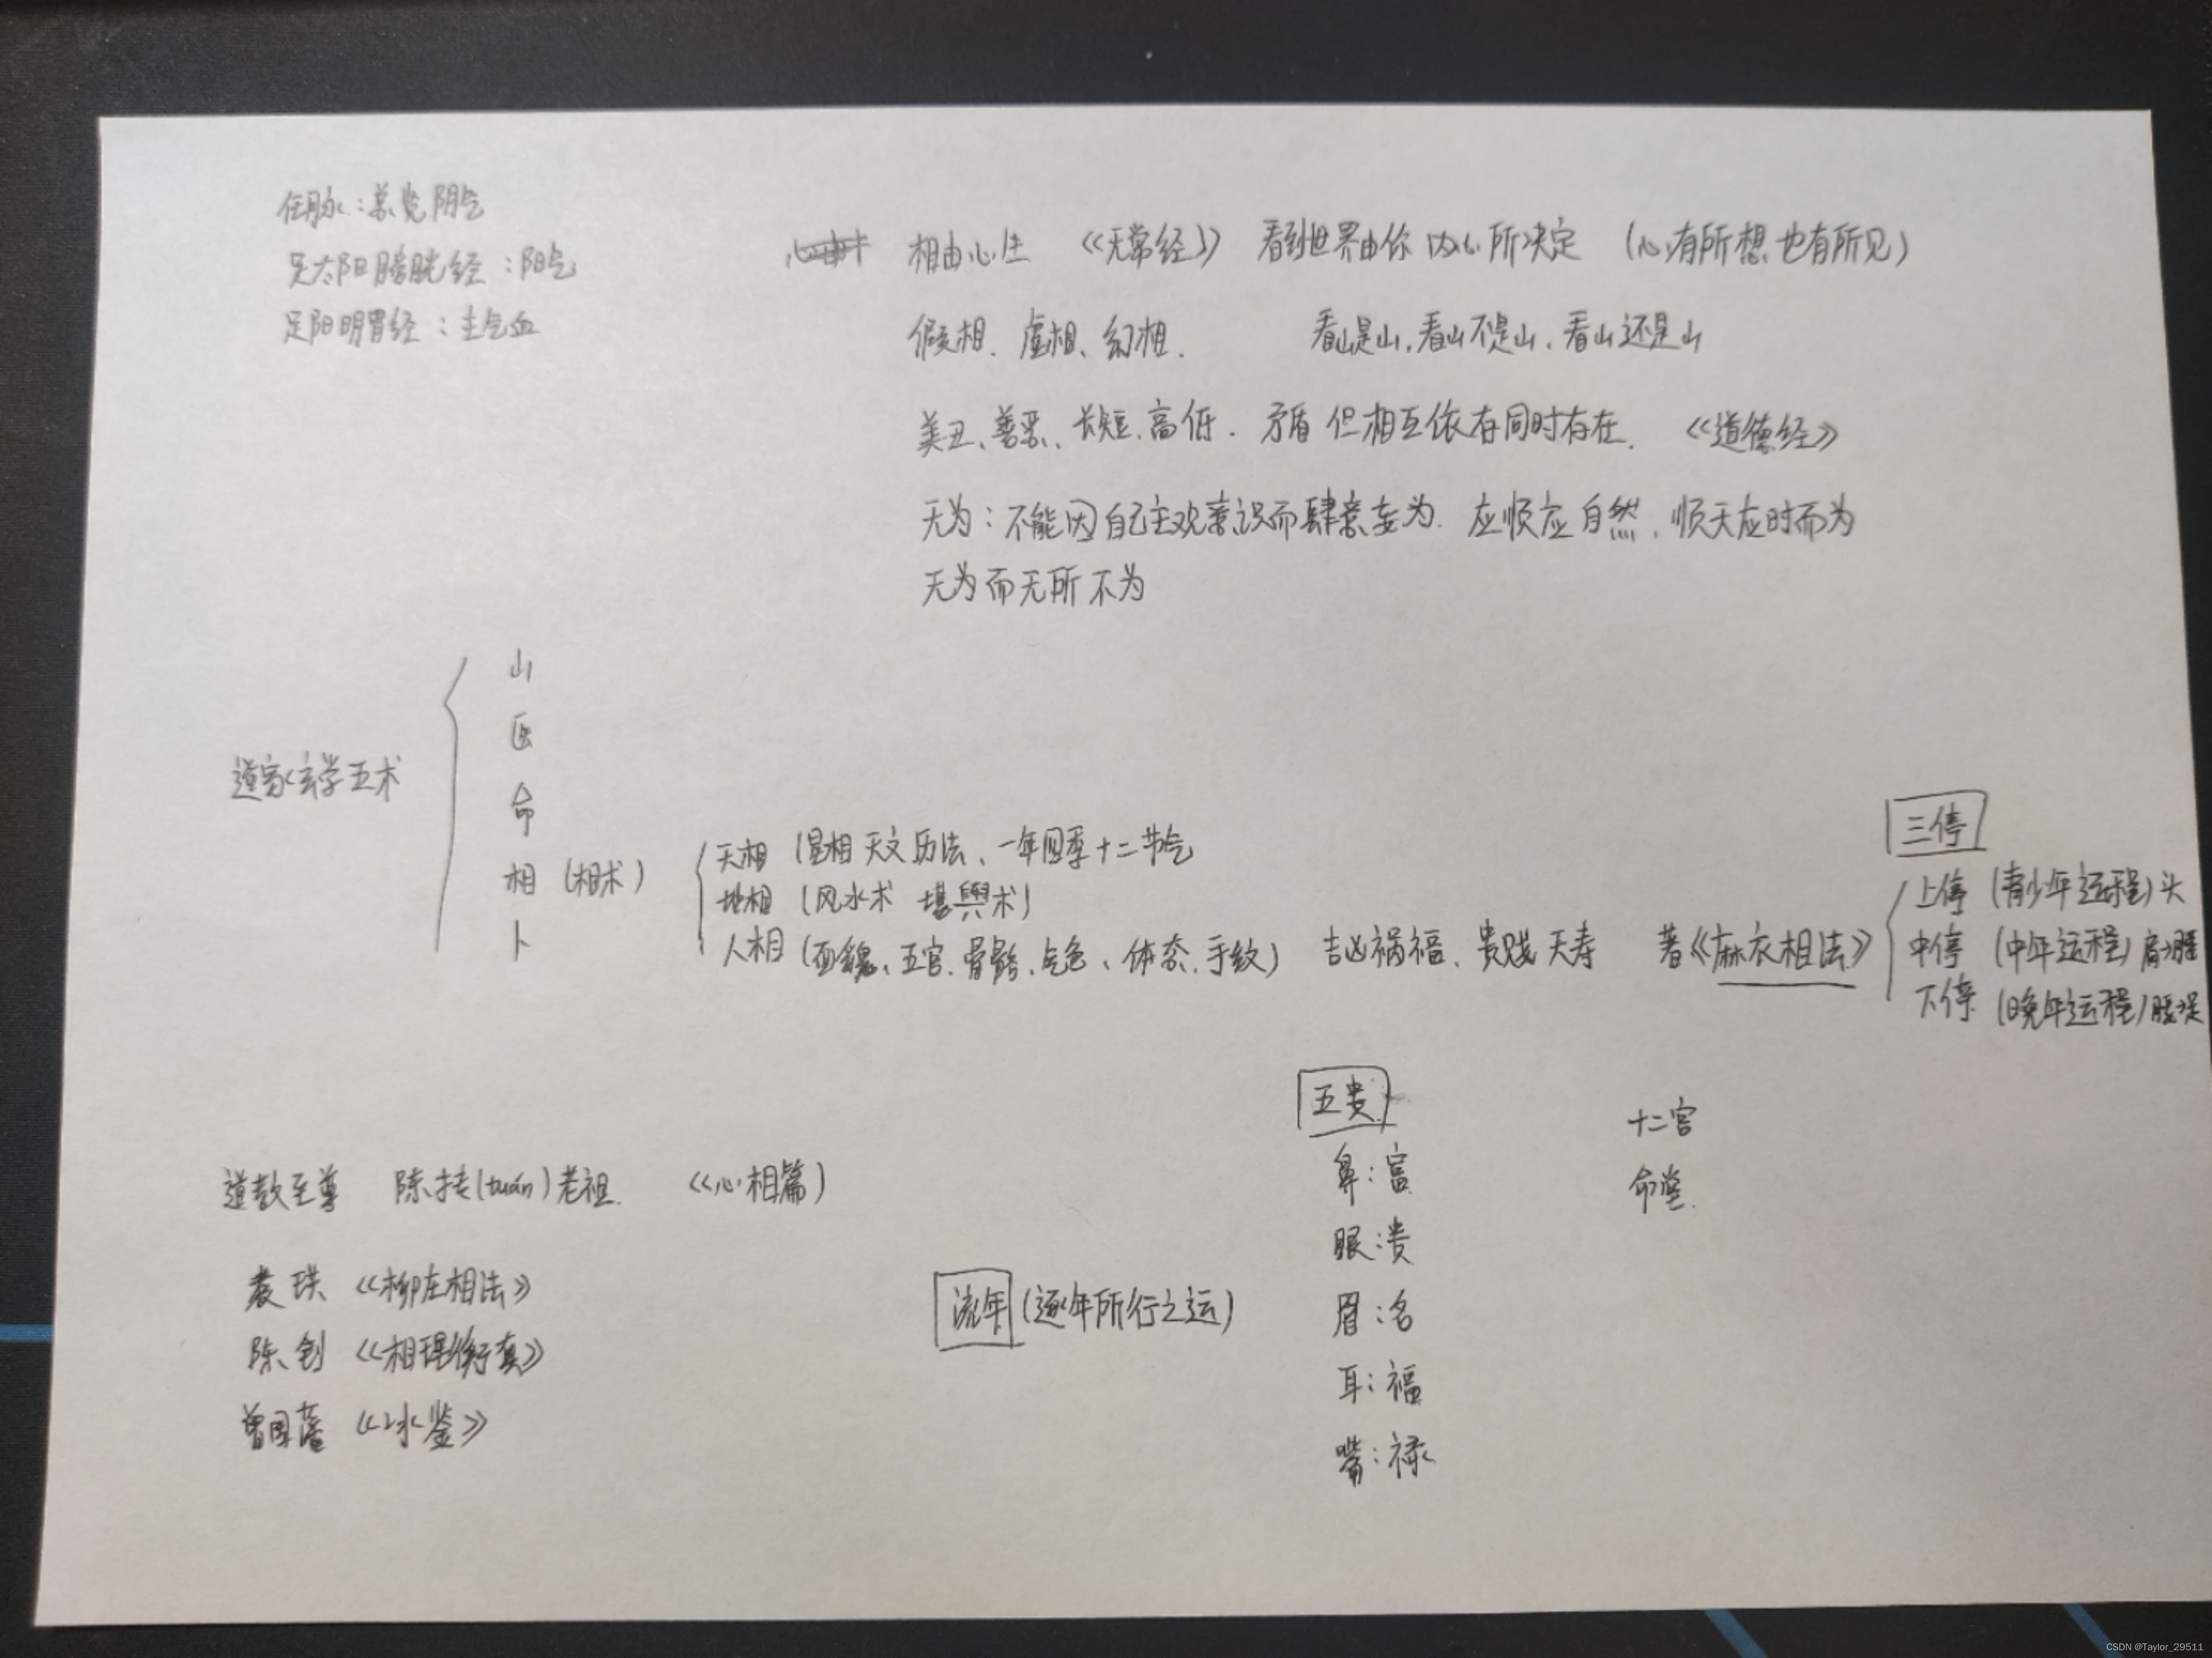 任脉：总览阴气
足太阳膀胱经：阳气
足阳明胃经：主气血
相由心生 《无常经》 看到世界由你内心所决定 （心有所想也有所见）
假相、虚相、幻相. 看山是山，看山不是山、看山还是山
美丑、善恶、长短、高低. 矛盾但相互依存同时存在. 《道德经》
无为：不能因自己主观意识而肆意妄为. 应顺应自然，顺天应时而为
无为而无所不为
道家玄学五术
山
医
命
相（相术）
卜
天相（星相 天文历法、一年四季十二节气
地相（风水术 堪舆术）
人相（面貌、五官、骨骼、气色、体态、手纹） 吉凶祸福、贵贱夭寿 著《麻衣相法》
三停
上停（青少年运程）头
中停（中年运程）肩→腰
下停（晚年运程）腰→足
道教至尊 陈抟(tuán)老祖. 《心相篇）
袁珙 《柳庄相法》
陈钊 《相理衡真》
曾国藩 《冰鉴》
流年（逐年所行之运）
五贵
鼻：富
眼：贵
眉：名
耳：福
嘴：禄
十二宫
命堂.
CSDN @Taylor_29511